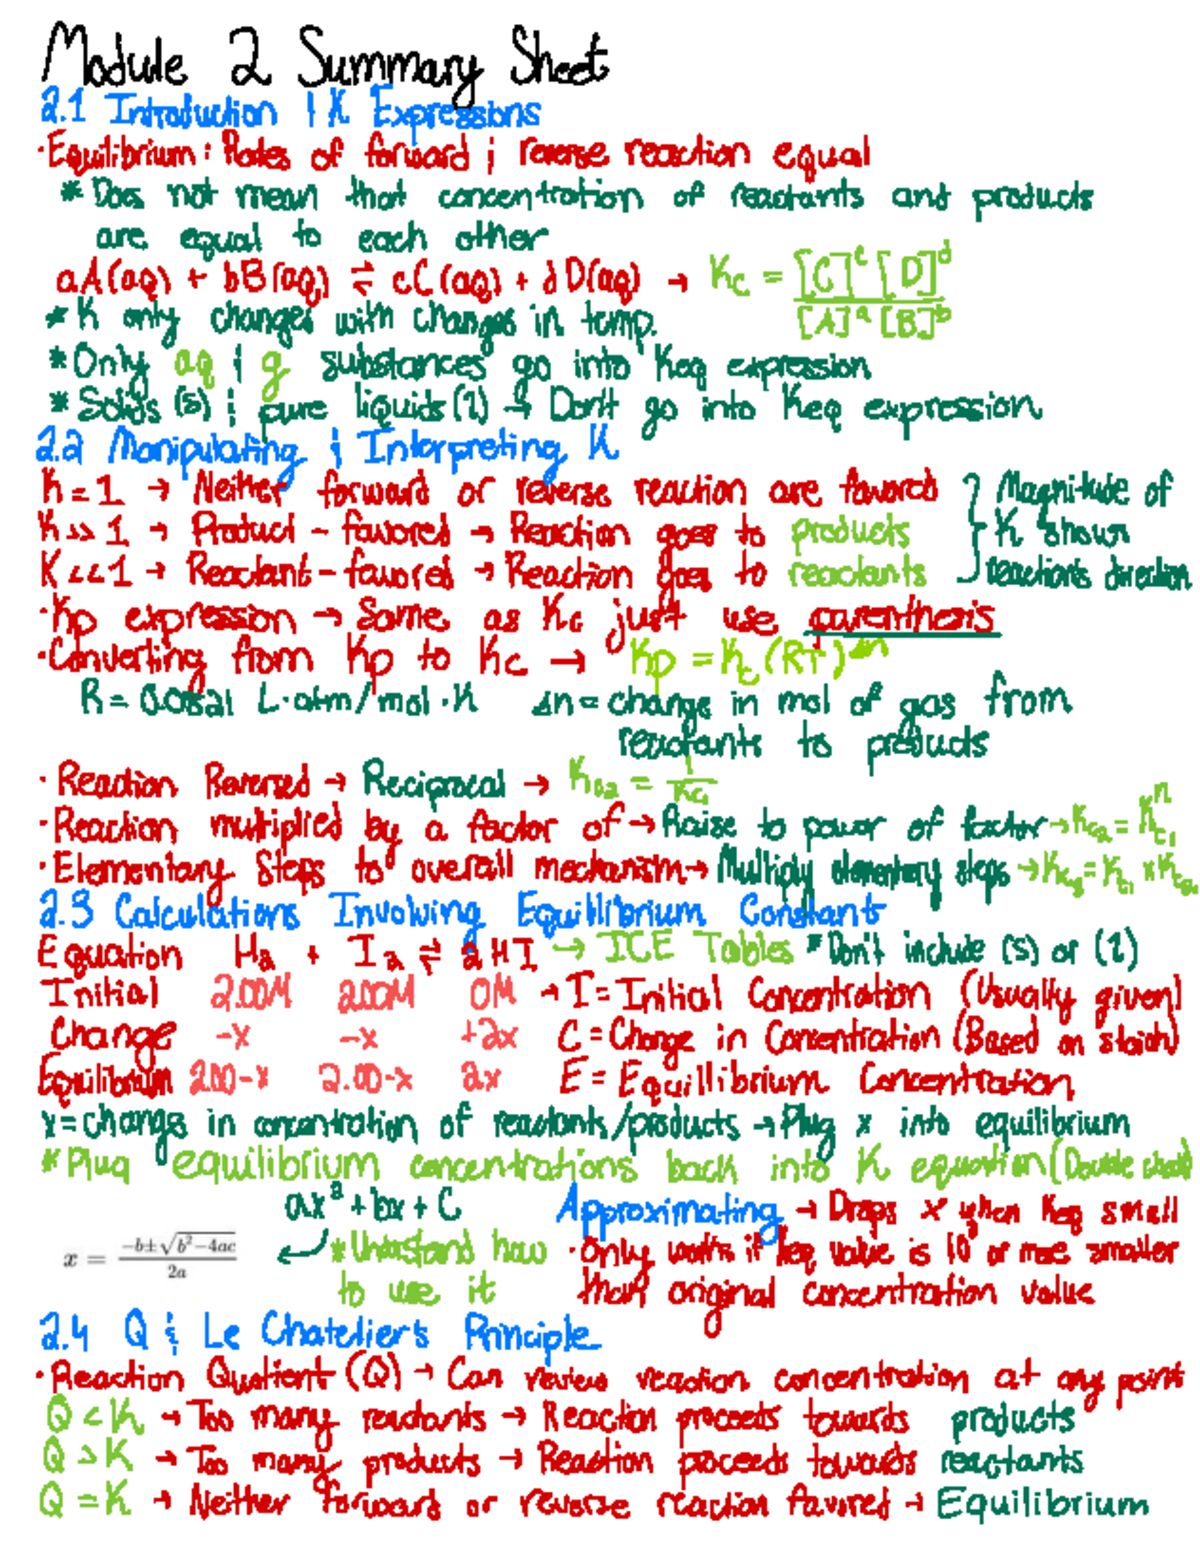 Module 2 Summary Sheet
2.1 Introduction & K Expressions
·Equilibrium: Rates of forward & reverse reaction equal
* Does not mean that concentration of reactants and products
are equal to each other
aA(aq) + bB(aq) ⇌ cC(aq) + dD(aq) → Kc = [C]^c [D]^d / [A]^a [B]^b
* K only changes with changes in temp.
* Only aq & g substances go into Keq expression
* Solids (s) & pure liquids (l) → Don't go into Keq expression
2.2 Manipulating & Interpreting K
K = 1 → Neither forward or reverse reaction are favored } Magnitude of
K >> 1 → Product - favored → Reaction goes to products K shows
K <<1 → Reactant - favored → Reaction goes to reactants reactions direction
·Kp expression → Same as Kc just use parenthesis
·Converting from Kp to Kc → Kp = Kc (RT)^Δn
R = 0.0821 L·atm/mol·K Δn = change in mol of gas from
reactants to products
· Reaction Reversed → Reciprocal → Kc2 = 1/Kc1
· Reaction multiplied by a factor of → Raise to power of factor → Kc2 = K^n c1
· Elementary Steps to overall mechanism → Multiply elementary steps → Kc3 = Kc1 x Kc2
2.3 Calculations Involving Equilibrium Constant
Equation H2 + I2 ⇌ 2HI → ICE Tables *Don't include (s) or (l)
Initial 2.00M 2.00M 0M → I = Initial Concentration (Usually given)
Change -x -x +2x C = Change in Concentration (Based on stoich)
Equilibrium 2.00-x 2.00-x 2x E = Equillibrium Concentration
x = change in concentration of reactants/products → Plug x into equilibrium
* Plug equilibrium concentrations back into K equation (Double check)
ax² + bx + C Approximating → Drops x when Keq small
x = −b±√b²−4ac / 2a *Understand how ·Only works if Keq value is 10 or more smaller
to use it than original concentration value
2.4 Q & Le Chatelier's Principle
·Reaction Quotient (Q) → Can review reaction concentration at any point
Q < K → Too many reactants → Reaction proceeds towards products
Q > K → Too many products → Reaction proceeds towards reactants
Q = K → Neither forward or reverse reaction favored → Equilibrium